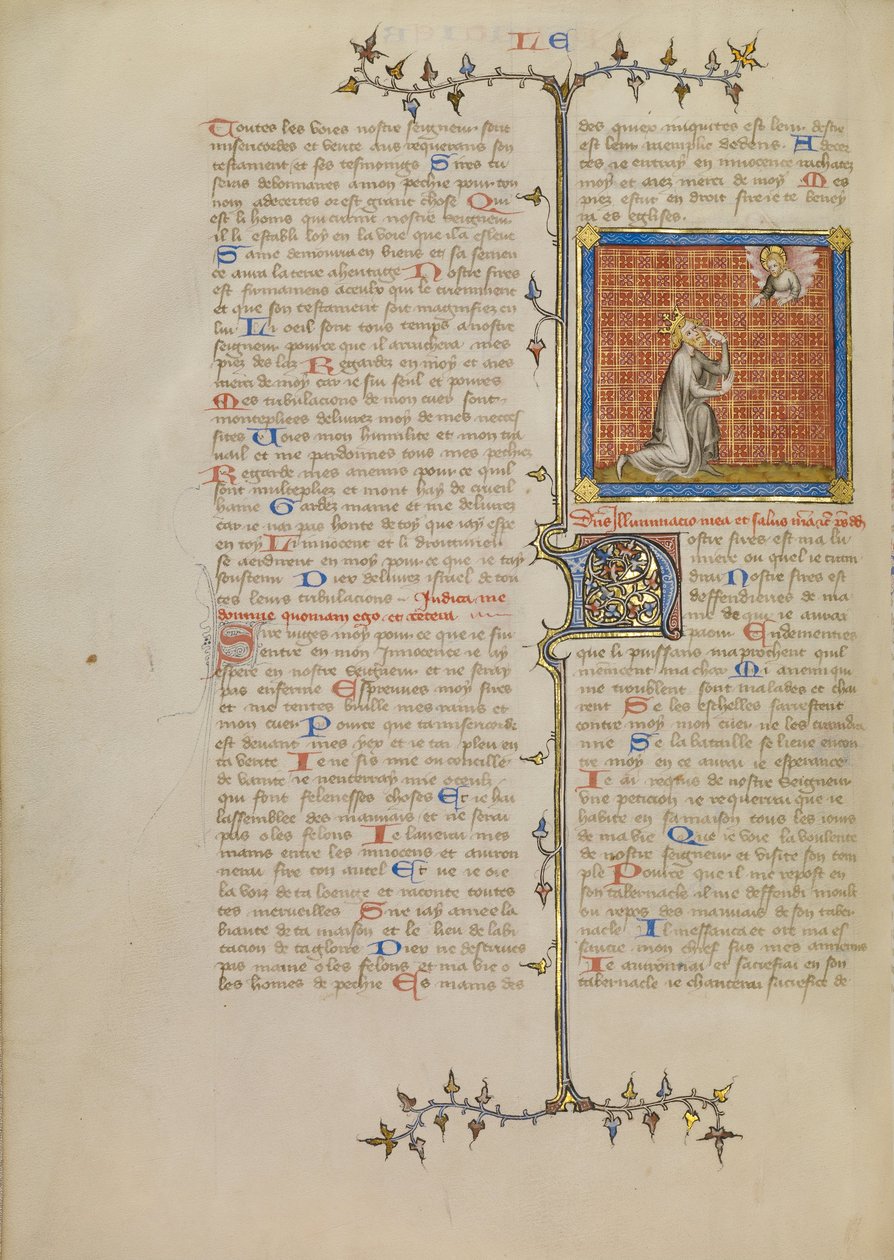 LE
Toutes les voies nostre seigneur sont
misericordes et verite aus requerans son
testament et ses tesmoings Sires tu
seras debonnaires a mon pechie pour ton
nom adecertes or est grant chose Qui
est li homs qui craint nostre seigneur
il li establi loy en la voie que il a esleue
Same demourra en biens et sa semen
ce aura la terre a heritage Nostre sires
est firmamens a ceulx qui le criemment
et que son testament soit magnifiez en
lui Li oeil sont tous temps a nostre
seigneur pour ce que il arrachera mes
piez des laz Regardez en moy et aies
merci de moy car ie sui seul et poures
Mes tribulacions de mon cuer sont
montepliees delivrez moy de mes neccessi
sites Voies mon humilite et mon tra
vail et me pardonnes tous mes pechiez
Regarde mes anemis pour ce quil
sont multepliez et mont hay de crueil
haine Gardez mame et me delivrez
car ie nai pas honte de toy que iay espe
en toy Li innocent et li droitturier
se aerdirent en moy pour ce que ie tay
soustenu Diex delivrez israel de tou
tes leurs tribulacions Iudica me
domine quoniam ego et cetera
Sire iuges moy pour ce que ie sui
entre en mon Innocence ie ay
espere en nostre seigneur et ne seray
pas enferme Espreuves moy sires
et me temptes brusle mes rains et
mon cuer Pource que ta misericorde
est devant mes yex et ie tai pleu en
ta verite Ie ne sis mie ou concille
de vanite ie nenterray mie o ceulz
qui font felenesses choses Et ie hai
lassemblee des mauvais et ne serai
pas o les felons Ie laverai mes
mains entre les innocens et auiron
nerai sire ton autel Et ue ie oie
la voiz de ta loenge et raconte toutes
tes merveilles Sire iay amee la
biaute de ta maison et le lieu de labi
tacion de ta gloire Diex ne destruies
pas mame o les felons et ma vie o
les homes de pechie Es mains des
des quiex iniquites est leur destre
est leur raemplie de dons Adecer
tes ie entray en innocence rachatez
moy et aiez merci de moy Mes
piez estut en droit sire ie te beney
rai es eglises.
Dns Illuminacio mea et salus mea
Nostre sires est ma lu
miere ou quel ie crain
drai Nostre sires est
deffendierres de ma
vie de qui ie aurai
paour Endementies
que li nuissans maprochent quil
meniucent ma char Mi anemi qui
me troublent sont malades et chai
rent Se les eschelles sarrestent
contre moy mon cuer ne les craindra
mie Se la bataille se lieve encon
tre moy en ce aurai ie esperance
Ie ai requis de nostre seigneur
une peticion ie requerrai que ie
habite en sa maison tous les iours
de ma vie Que ie voie la voulente
de nostre seigneur et visite son tem
ple Pource que il me repost en
son tabernacle il me deffendi moult
ou repos des mauvais de son taber
nacle Il messauca et ore ma es
saucie mon chief sus mes anemis
Ie auironnai et sacrefiai en son
tabernacle ie chanterai sacrefice de